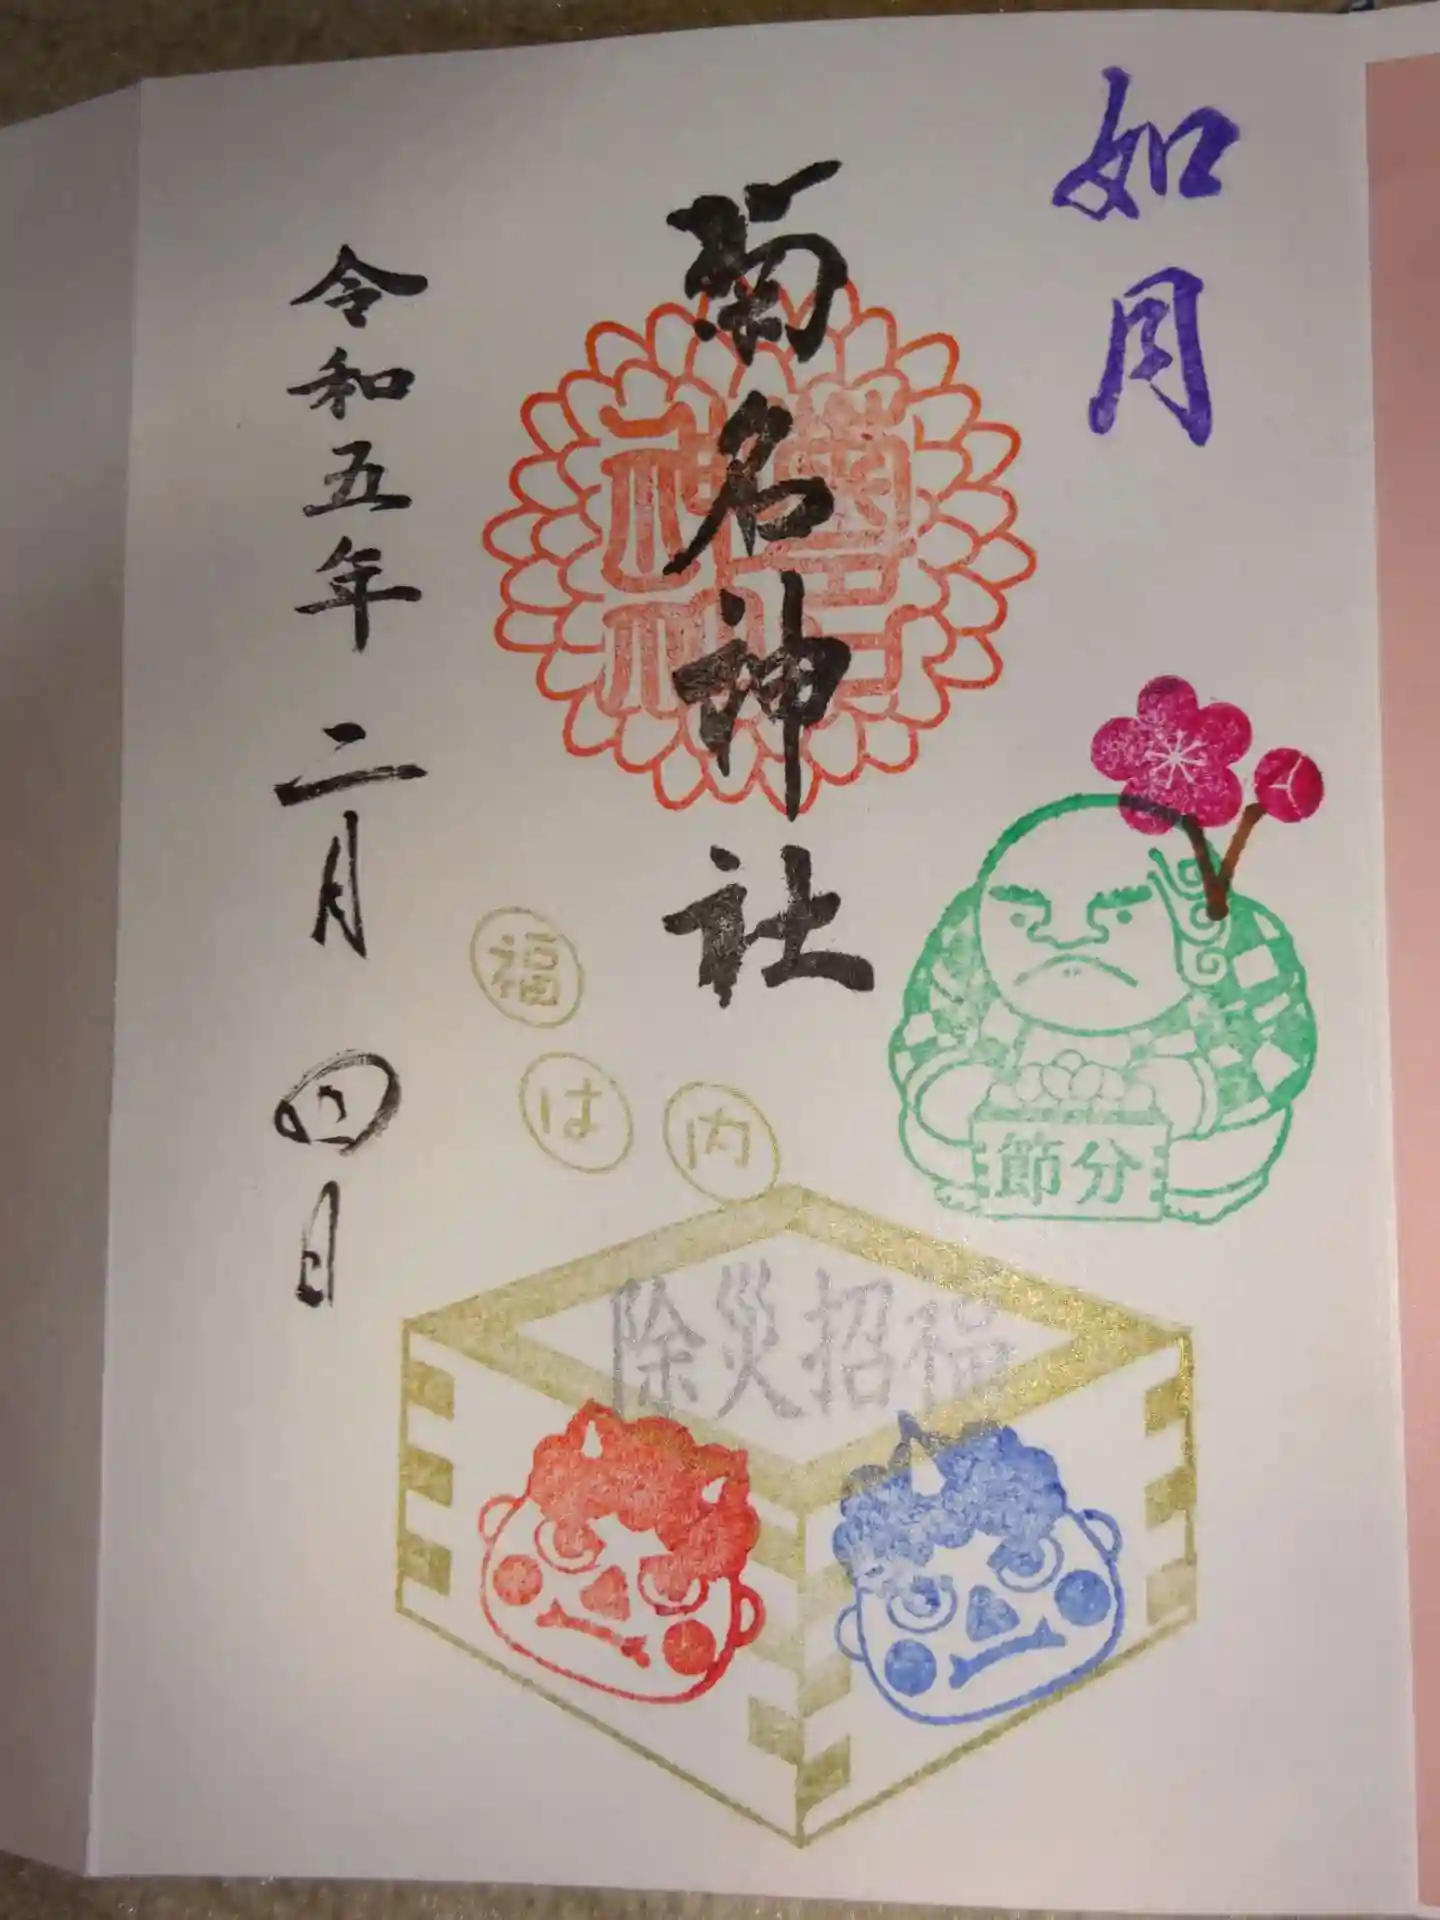 如月
菊名神社
令和五年二月四日
節分
福は内
除災招福